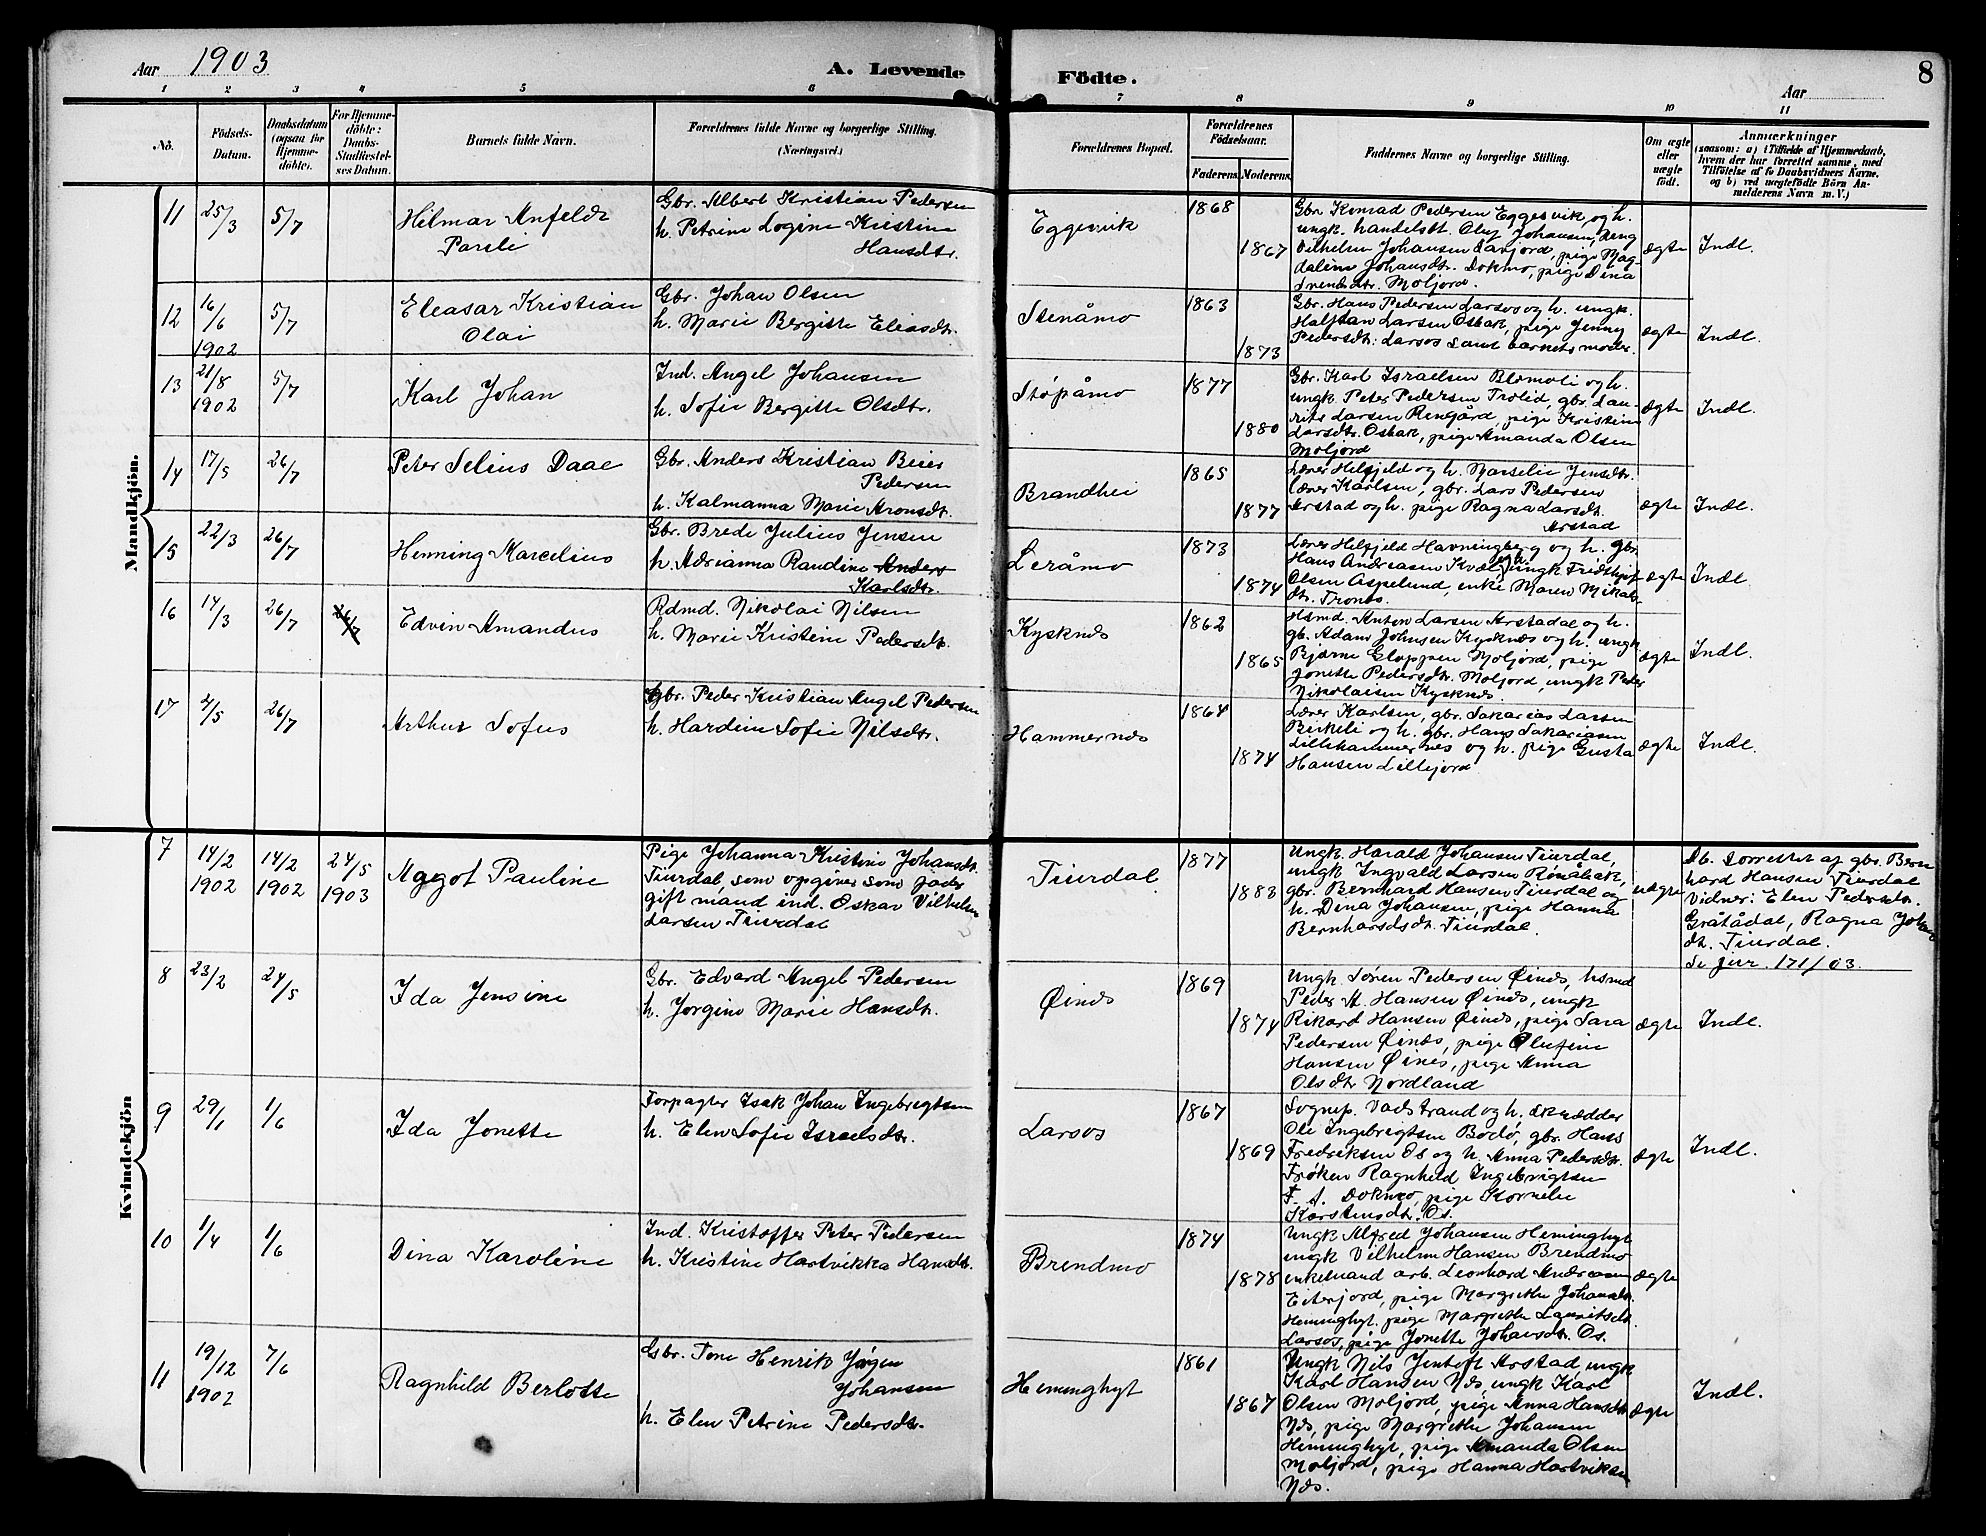 Aar 1903
A. Levende Födte.
Aar
8
1 2 3 4 5 6 7 8 9 10 11
No.
Födsels-Datum.
Daabsdatum (ogsaa for Hjemme-döbte).
For Hjemme-döbte: Daabs-Stadfæstel-ses Datum.
Barnets fulde Navn.
Forældrenes fulde Navne og borgerlige Stilling. (Næringsvei.)
Forældrenes Bopæl.
Forældrenes Födselsaar.
Faderens. Moderens.
Faddernes Navne og borgerlige Stilling.
Om ægte eller uægte födt.
Anmærkninger
(saasom: a) i Tilfælde af Hjemmedaab,
hvem der har forrettet samme, med
Tilföielse af to Daabsvidners Navne,
og b) ved uægtefödte Börn An-
melderens Navn m. V.)
Mandkjön.
11 25/3 5/7
Hilmar Anfeldt
Pareli
Gbr. Albert Kristian Pedersen
h. Petrine Logine Kristine
Hansdtr.
Eggesvik
1868
1867
Gbr. Konrad Pedersen Eggesvik, og h.
ungk. handelsbt. Oluf Johansen, ungk
Vilhelm Johansen Sanjord, pige Mag-
dalina Johansdtr. Dokmo, pige Dina
Svendsdtr. Moljord.
ægte
Indl.
12 16/6 1902 5/7
Eleasar Kristian
Olai
Gbr. Johan Olsen
h. Marie Bergitte Eliasdtr.
Stenåmo
1863
1873
Gbr. Hans Pedersen Larsos og h. ungk.
Halfdan Larsen Osbak, pige Jenny
Pedersdtr. Larsos samt barnets moder.
ægte
Indl.
13 21/8 1902 5/7
Karl Johan
Ind. Angel Johansen
h. Sofie Bergitte Olsdtr.
Støpåmo
1877
1880
Gbr. Karl Israelsen Blomoli og h.
ungk Peter Pedersen Trolid, gbr. Lau-
rits Larsen Rengård, pige Kristine
Larsdtr. Osbak, pige Amanda Olsen
Moljord
ægte
Indl.
14 17/5 26/7
Peter Selius Daae
Gbr. Anders Kristian Beier
Pedersen
h. Kalmanna Marie Aronsdtr.
Brandhei
1865
1877
Lærer Helfjeld og h. Marselie Jensdtr.
lærer Karlsen, gbr. Lars Pedersen
Arstad og h. pige Ragna Larsdtr.
Arstad
ægte
Indl.
15 22/3 26/7
Henning Marcelius
Gbr. Brede Julius Jensen
h. Adrianna Randine Anders
Karlsdtr.
Leråmo
1873
1874
Lærer Helfjeld Havningberg og h. gbr.
Hans Andreassen Kvæl og h. ungk Fridthjof
Olsen Aspelund, enke Maren Mikals-
dtr. Trones.
ægte
Indl.
16 14/3 26/7 26/7
Edvin Amandus
Rdmd. Nikolai Nilsen
h. Marie Kristine Pedersdtr.
Kysknes
1862
1865
Hsmd. Anton Larsen Arstadal og h.
gb. Adam Johnsen Kysknes og h. ungk
Bjarne Gloppen Moljord, pige
Jonette Pedersdtr. Moljord, ungk Peder
Nikolaisen Kysknes
ægte
Indl.
17 4/5 26/7
Arthur Sofus
Gbr. Peder Kristian Angel Pedersen
h. Hardine Sofie Nilsdtr.
Hammernes
1864
1874
Lærer Karlsen, gbr. Sakarias Larsen
Birkeli og h. gbr. Hans Sakariasen
Lillehammernes og h. pige Gusta
Hansen Lillejord
ægte
Indl.
Kvindekjön
7 14/2 1902 14/2 1902 24/5 1903
Aagot Pauline
Pige Johanna Kristine Johansdt.
Tiurdal, som opgiver som fader
gift mand ind. Oskar Vilhelm
Larsen Tiurdal
Tiurdal
1877
1883
Ungk. Harald Johansen Tiurdal,
ungk Ingvald Larsen Rönåbak,
gbr. Bernhard Hansen Tiurdal og
h. Dina Johansen, pige Hanna
Bernhardsdt. Tiurdal.
uægte
Db. forrettet af gbr. Bern
hard Hansen Tiurdal
Vidner: Elen Pedersdtr.
Gråtådal, Ragna Johan
dtr. Tiurdal.
Se jur. 171/03.
8 23/2 24/5
Ida Jensine
Gbr. Edvard Angel Pedersen
h. Jorgine Marie Hansdtr.
Øines
1869
1874
Ungk Søren Pedersen Øines, hsmd
Peder A. Hansen Øines, ungk
Rikard Hansen Øines, pige Sara
Pedersen Øines, pige Olufine
Hansen Øines, pige Anna
Olsdtr Nordland
ægte
Indl.
9 29/1 1/6
Ida Jonette
Forpagter Isak Johan Ingebrigtsen
h. Elen Sofie Israelsdtr.
Larsos
1867
1869
Sognep. Vadstrand og h. skrædder
Ole Ingebrigtsen Bodø, gbr. Hans
Fredriksen Os og h. Anna Pedersdtr.
Frøken Ragnhild Ingebrigtsen
F. S. Dokmo, pige Kornelie
Karstensdtr. Os.
ægte
Indl.
10 1/4 1/6
Dina Karoline
Ind. Kristoffer Peter Pedersen
h. Kristine Hartvikka Hansdtr.
Brendmo
1874
1878
Ungk Alfred Johansen Heminghyt
ungk Vilhelm Hansen Brendmo
enkemand arb. Leonhard Andreasen
Eiterjord, pige Margrethe Johansdtr.
Heminghyt, pige Margrethe Lauritsdtr.
Larsos, pige Jonette Johansdtr. Os.
ægte
11 19/12 1902 7/6
Ragnhild Berlotte
Gbr. Tone Henrik Jørgen
Johansen
h. Elen Petrine Pedersdtr.
Heminghyt
1861
1867
Ungk Nils Jentoft Arstad, ungk
Karl Hansen Nes, ungk Karl
Olsen Moljord, pige Anna Hansdt
Nes, pige Margrethe Johansen
Heminghyt, pige Amanda Olsen
Moljord, pige Hanna Hartviksen
Nes.
ægte
Indl.